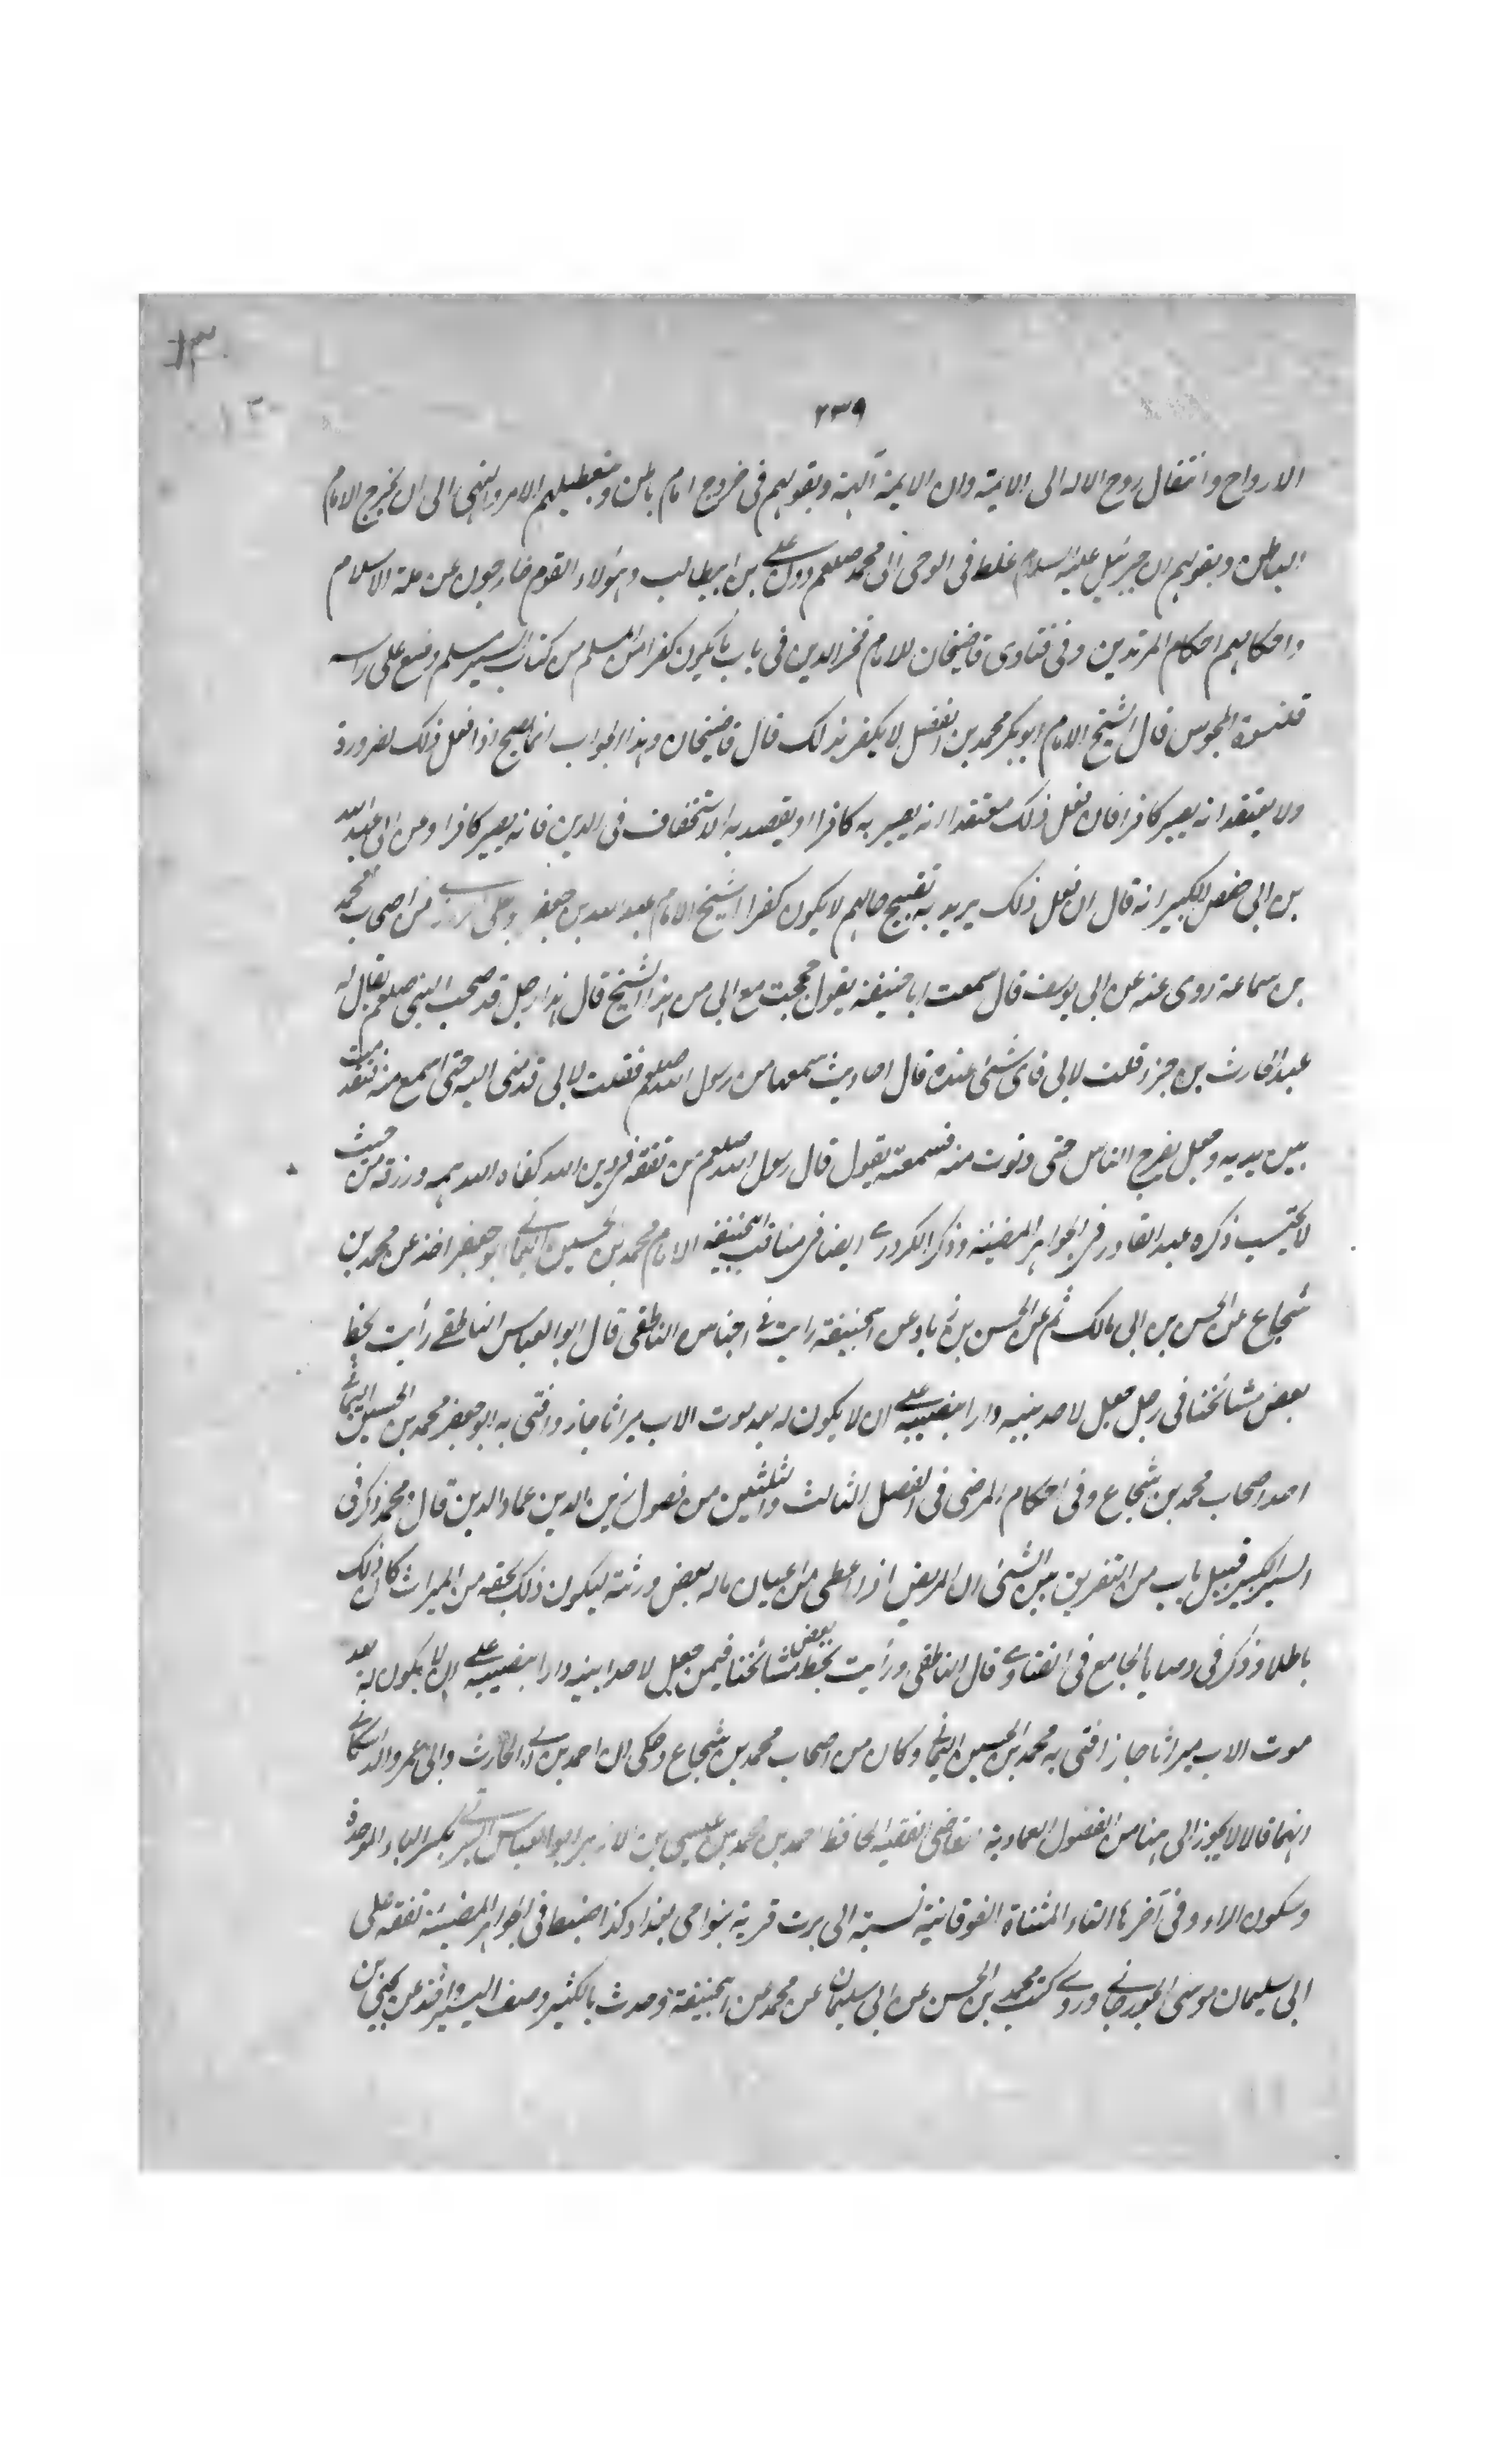 ٢٣٩
الارواح وانتقال روح الاله الى الايمة وان الايمة آلهة وبقولهم فى خروج امام باطن وبتعطيلهم الامر والنهى الى ان يخرج الامام
الباطن وبقولهم ان جبرئيل عليه السلام غلط فى الوحى الى محمد صلعم دون على بن ابيطالب وهؤلاء القوم خارجون عن ملة الاسلام
واحكامهم احكام المرتدين وفى فتاوى قاضيخان للامام فخر الدين فى باب ما يكون كفرا من المسلم من كتاب السير مسلم وضع على راسه
قلنسوة المجوس قال الشيخ الامام ابو بكر محمد بن الفضل لا يكفر بذلك قال قاضيخان وهذا الجواب انما يصح اذا فعل ذلك لضرورة
ولا يعتقد انه يصير كافرا فان فعل ذلك معتقدا انه يصير به كافرا او يقصد به الاستخفاف فى الدين فانه يصير كافرا وعن ابى عبد الله
بن ابى حفص الكبير انه قال ان فعل ذلك يريد به تقبيح حالهم لا يكون كفرا الشيخ الامام عبد الله بن جعفر من اصحاب محمد
بن سماعة روى عنه عن ابى يوسف قال سمعت ابا حنيفة يقول حججت مع ابى من هذا الشيخ قال هذا رجل قد صحب النبى صلعم يقال له
عبد الحارث بن جزء قلت لابى فاى شئ عنده قال احاديث سمعها من رسول الله صلعم فقلت لابى قدمنى اليه حتى اسمع منه فتقدمت
بين يديه وجعل يفرج الناس حتى دنوت منه فسمعته يقول قال رسول الله صلعم من تفقه فى دين الله كفاه الله همه ورزقه من حيث
لا يحتسب ذكره عبد القادر فى الجواهر المضيئة وذكر الكردرى ايضا فى مناقب ابى حنيفة الامام محمد بن الحسين اليمانى ابو جعفر اخذ عن محمد بن
شجاع عن الحسن بن ابى مالك ثم عن الحسن بن زياد عن ابيحنيفة رايت فى اجناس الناطفى قال ابو العباس الناطفى رأيت بخط
بعض مشائخنا فى رجل جعل لاحد بنيه دارا بنصيبه على ان لا يكون له بعد موت الاب ميراثا جاز وافتى به ابو جعفر محمد بن الحسين اليمانى
احد اصحاب محمد بن شجاع وفى احكام المرضى فى الفصل الثالث والثلثين من فصول زين الدين عماد الدين قال ومحمد ذكر فى
السير الكبير قبيل باب من التفريق بين الشئ ان المريض اذا اعطى من اعيان ماله بعض ورثته ليكون ذلك بحقه من الميراث كان ذلك
باطلا وذكر فى وصايا الجامع فى الفتاوى قال الناطفى ورأيت بخط بعض مشائخنا فيمن جعل لاحد ابنيه دارا بنصيبه على ان لا يكون له بعد
موت الاب ميراثا جاز افتى به محمد بن الحسين اليمانى وكان من اصحاب محمد بن شجاع وحكى ان احمد بن ابى الحارث وابى عمرو
انهما قالا لا يجوز الى هنا من الفصول العمادية القاضى الفقيه الحافظ احمد بن محمد بن عيسى بن الازهر ابو العباس البرتى بكسر الباء الموحدة
وسكون الراء وفى آخرها التاء المثناة الفوقانية نسبة الى برت قرية بنواحى بغداد كذا ضبط فى الجواهر المضيئة تفقه على
ابى سليمان موسى الجوزجانى وروى كتب محمد بن الحسن عن ابى سليمان عن محمد عن ابيحنيفة وحدث بالكثير وصنف المسند واخذ عن يحيى بن